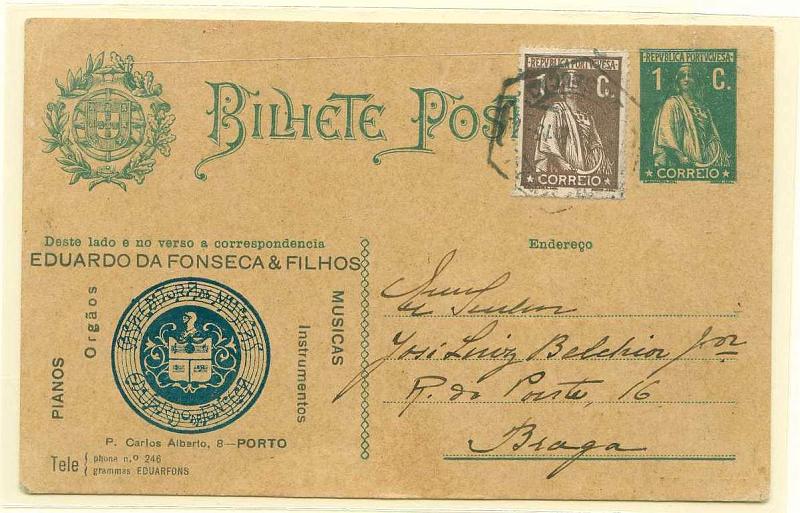 REPUBLICA PORTUGUESA
1 C.
CORREIO
REPVBLICA PORTVGVESA
1 C.
CORREIO
BILHETE POST
Deste lado e no verso a correspondencia
Endereço
EDUARDO DA FONSECA & FILHOS
PIANOS
Orgãos
MUSICAS
Instrumentos
P. Carlos Alberto, 8—PORTO
Tele { phone n.º 246
grammas EDUARFONS
José Luiz Belchior Jor
R. do Poste, 16
Braga